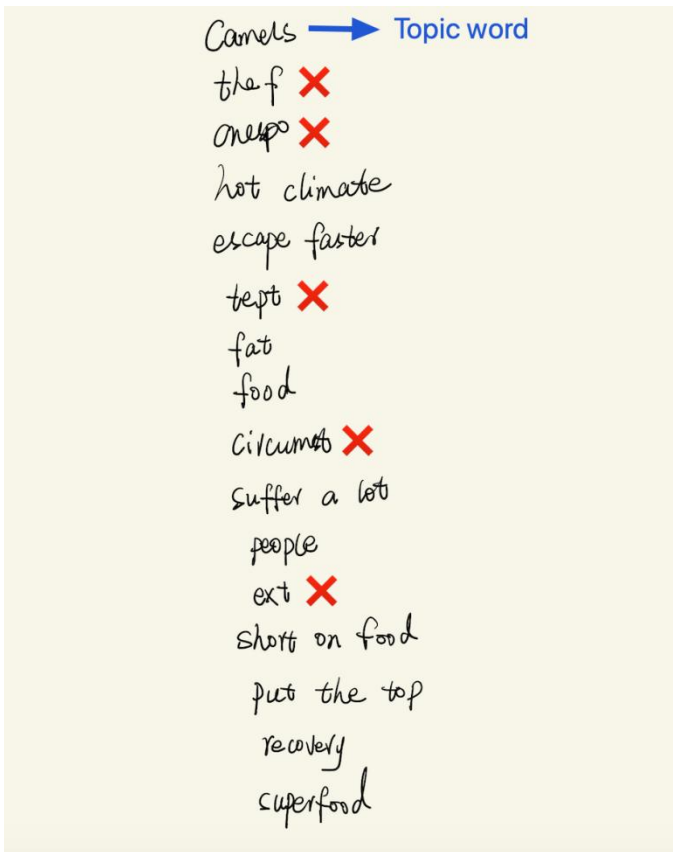 Camels → Topic word
the f ❌
onespo ❌
hot climate
escape faster
tept ❌
fat
food
circumst ❌
suffer a lot
people
ext ❌
short on food
put the top
recovery
superfood